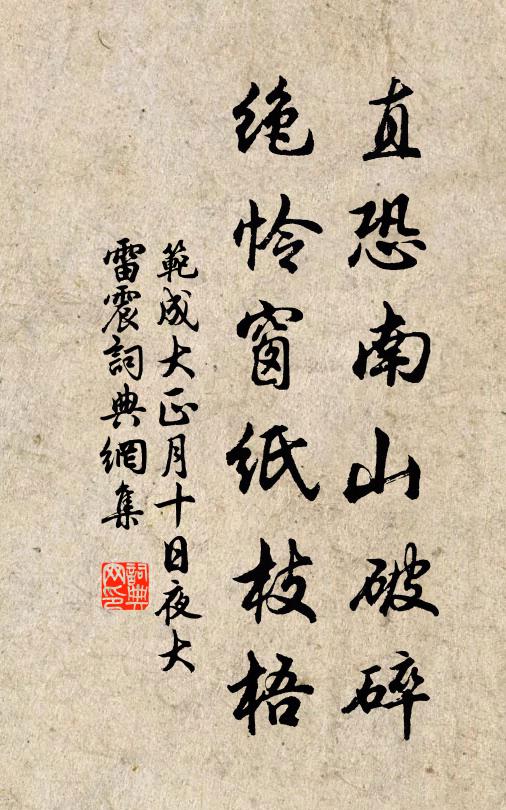 直恐南山破碎
绝怜窗纸枝梧
範成大正月十日夜大
雷震詞典網集
詞典网印